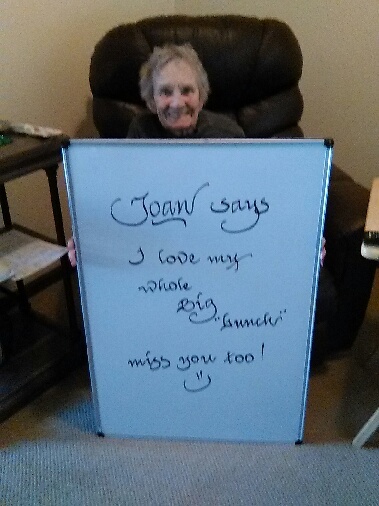 Joan says
I love my
whole
Big
"bunch"
miss you too!